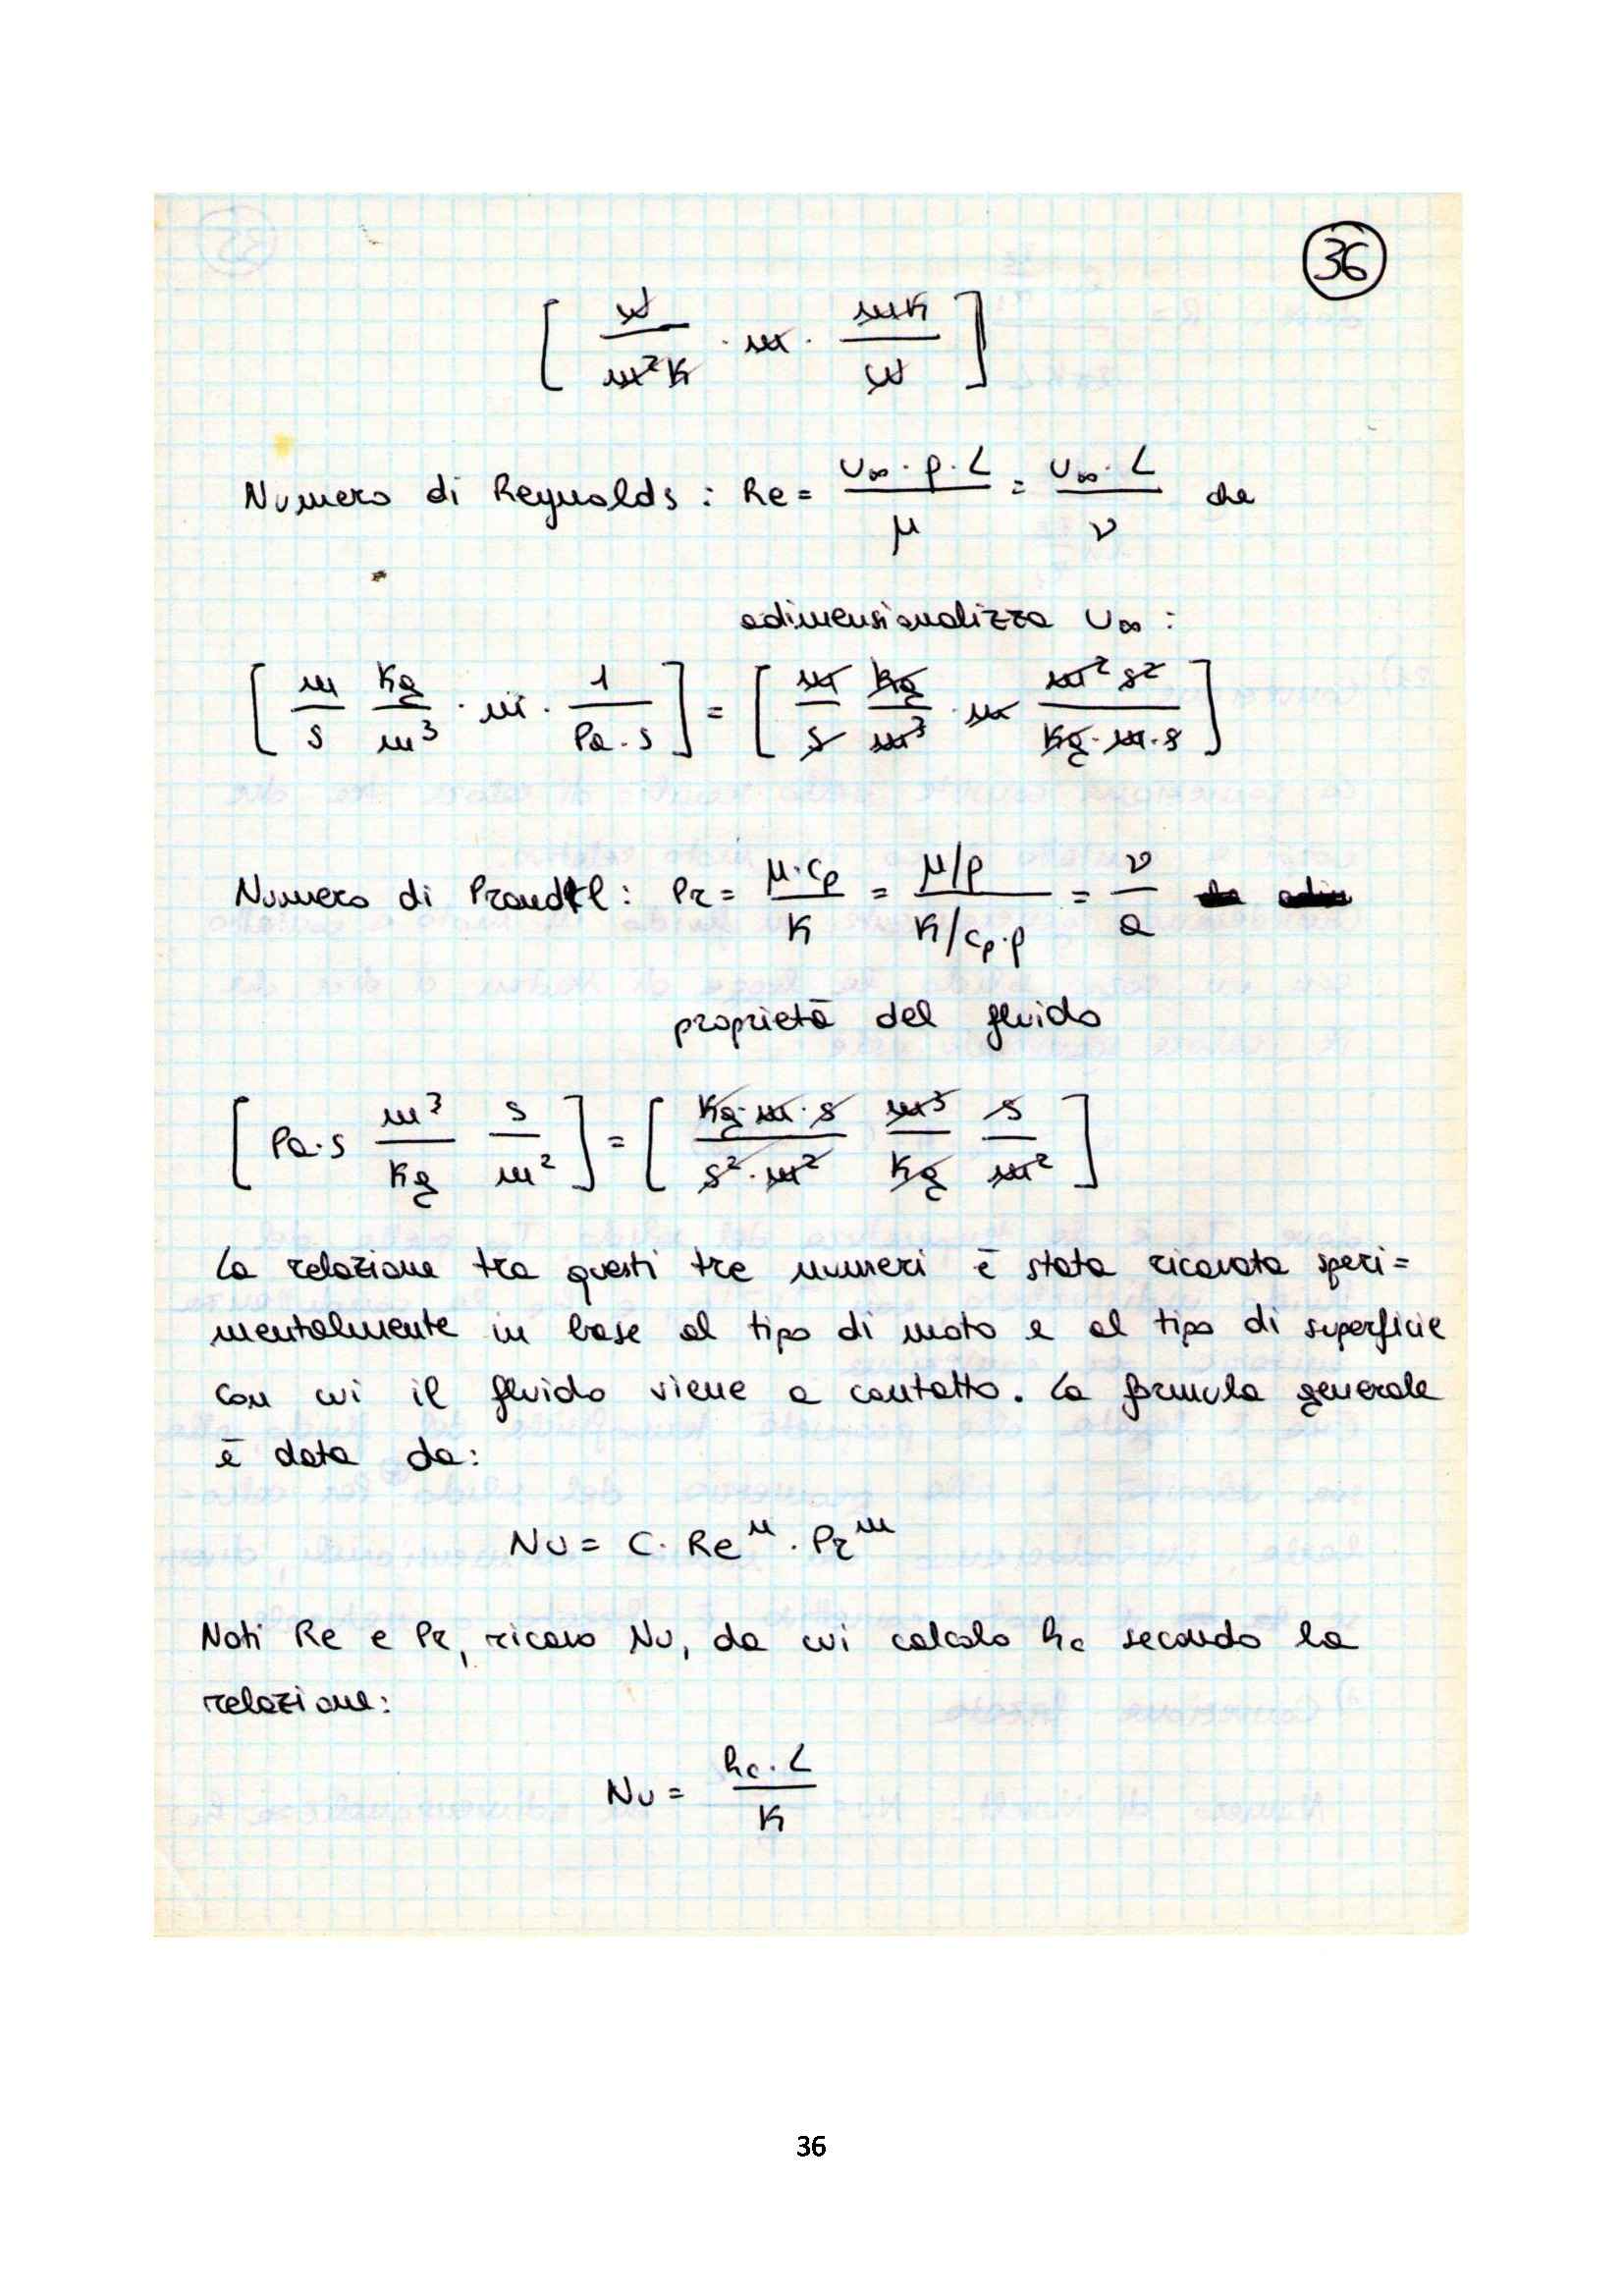 36
[ W/m²K · m · mK/W ]
Numero di Reynolds : Re = (U∞ · ρ · L)/μ = (U∞ · L)/ν che
adimensionalizza U∞ :
[ m/s kg/m³ · m · 1/(Pa · s) ] = [ m/s kg/m³ · m (m² s²)/(kg · m · s) ]
Numero di Prandtl : Pr = (μ · cp)/K = (μ/ρ)/(K/cp · ρ) = ν/a
proprietà del fluido
[ Pa · s m³/kg s/m² ] = [ (kg · m · s)/(s² · m²) m³/kg s/m² ]
La relazione tra questi tre numeri è stata ricavata speri=
mentalmente in base al tipo di moto e al tipo di superficie
con cui il fluido viene a contatto. La formula generale
è data da:
Nu = C · Reⁿ · Prᵐ
Noti Re e Pr, ricavo Nu, da cui calcolo hc secondo la
relazione:
Nu = (hc · L)/K
36